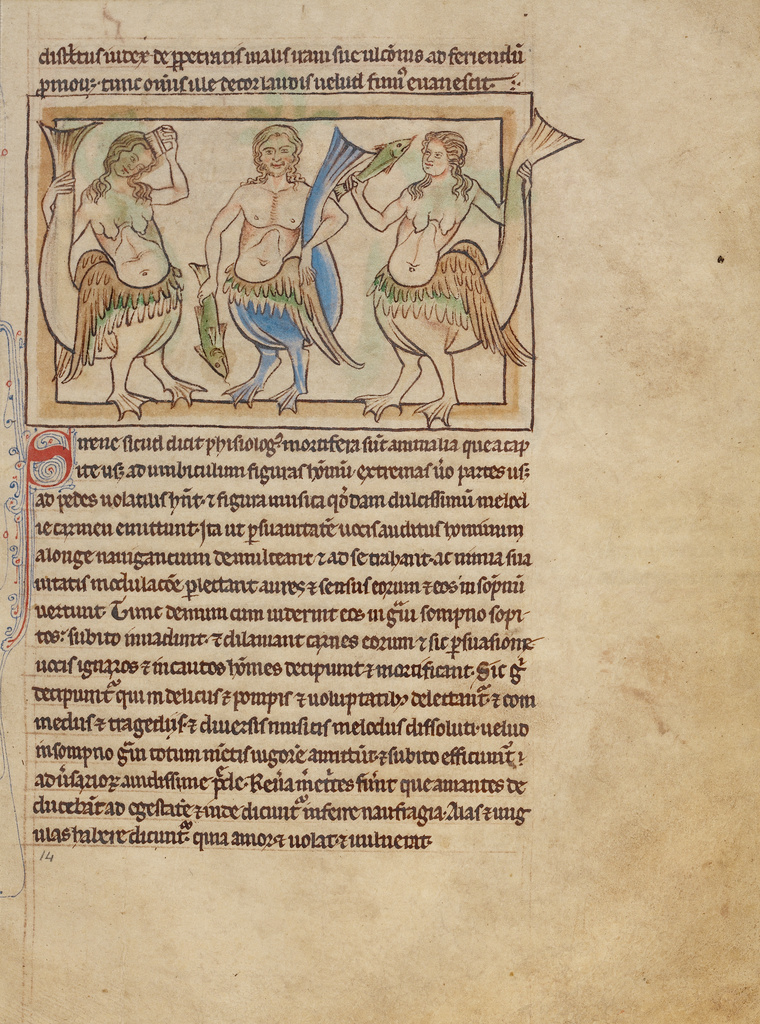 districtus iudex de ꝑpetratis malis iram sue ulc̄onis ad feriendū
tunc om̄is ille decor laudis uelud fumꝰ euanescit.
Sirene sicud dicit phisiologꝰ mortifera sūt animalia que a cap
ite usqꝫ ad umbiculum figuras hōinū. extremas ūo partes usqꝫ
ad pedes uolatilis hn̄t. ⁊ figura musica qōdam dulcissimū melod
ie carmen emittunt. Ita ut ꝑ suauitatē uocis auditus hominum
a longe nauigancium demulceant ⁊ ad se trahant. ac nimia sua
uitatis modulac̄oe ꝑlectant aures ⁊ sensus eorum ⁊ eos in sopnū
uertunt. Tunc demum cum uiderint eos in g̃ui sompno sopi
tos: subito inuadunt. ⁊ dilaniant carnes eorum ⁊ sic ꝑsuasione
uocis ignaros ⁊ incautos hōmes decipiunt ⁊ mortificant. Sic g̊
decipiunt᷑ qui in deliciis ⁊ pompis ⁊ uoluptatibꝫ delectant᷑. ⁊ com
mediis ⁊ tragediis. ⁊ diuersis musicis melodiis dissoluti. uelud
in sompno g̃ui totum mētis uigorē amittūt. ⁊ subito efficiunt᷑
adūsarioꝝ auidissime p̄de. Re ūa m̄etrices fūnt que amantes de
ducebāt ad egestatē ⁊ inde dicunt᷑ inferre naufragia. Alas ⁊ ung
ulas habere dicunt᷑. quia amor ⁊ uolat. ⁊ uulnerat.
14